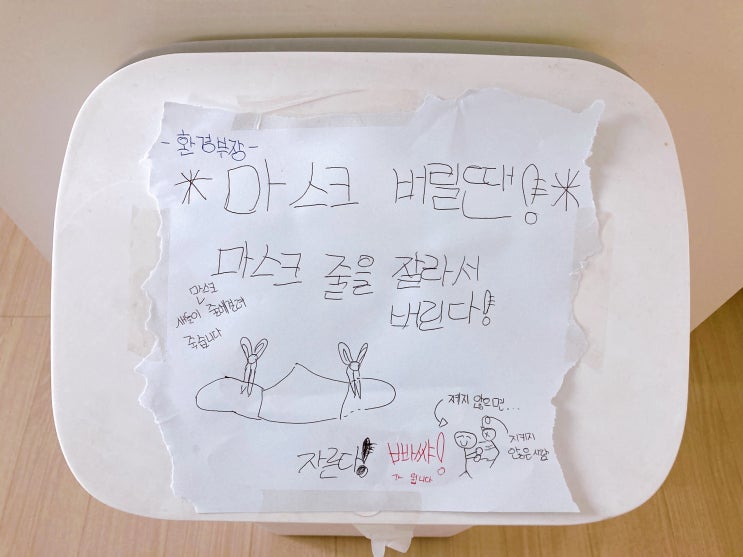 -환경부장-
*마스크 버릴땐!*
마스크 줄을 잘라서
버린다!
마스크
새들이 줄에걸려
죽습니다
자른다!
빠쌰!
가 됩니다
져지 않으면...
지키지
않은 사람